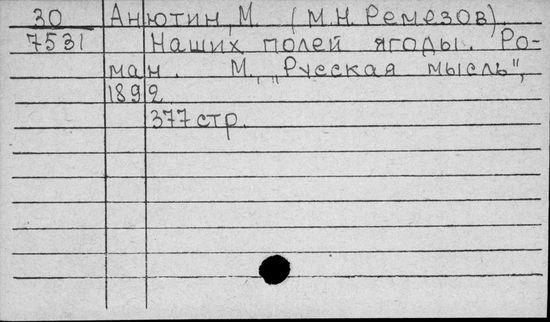 30 Анютин, М. (М.Н. Ремезов).
7531 Наших полей ягоды. Ро-
ман. М., „Русская мысль",
1892
377 стр.